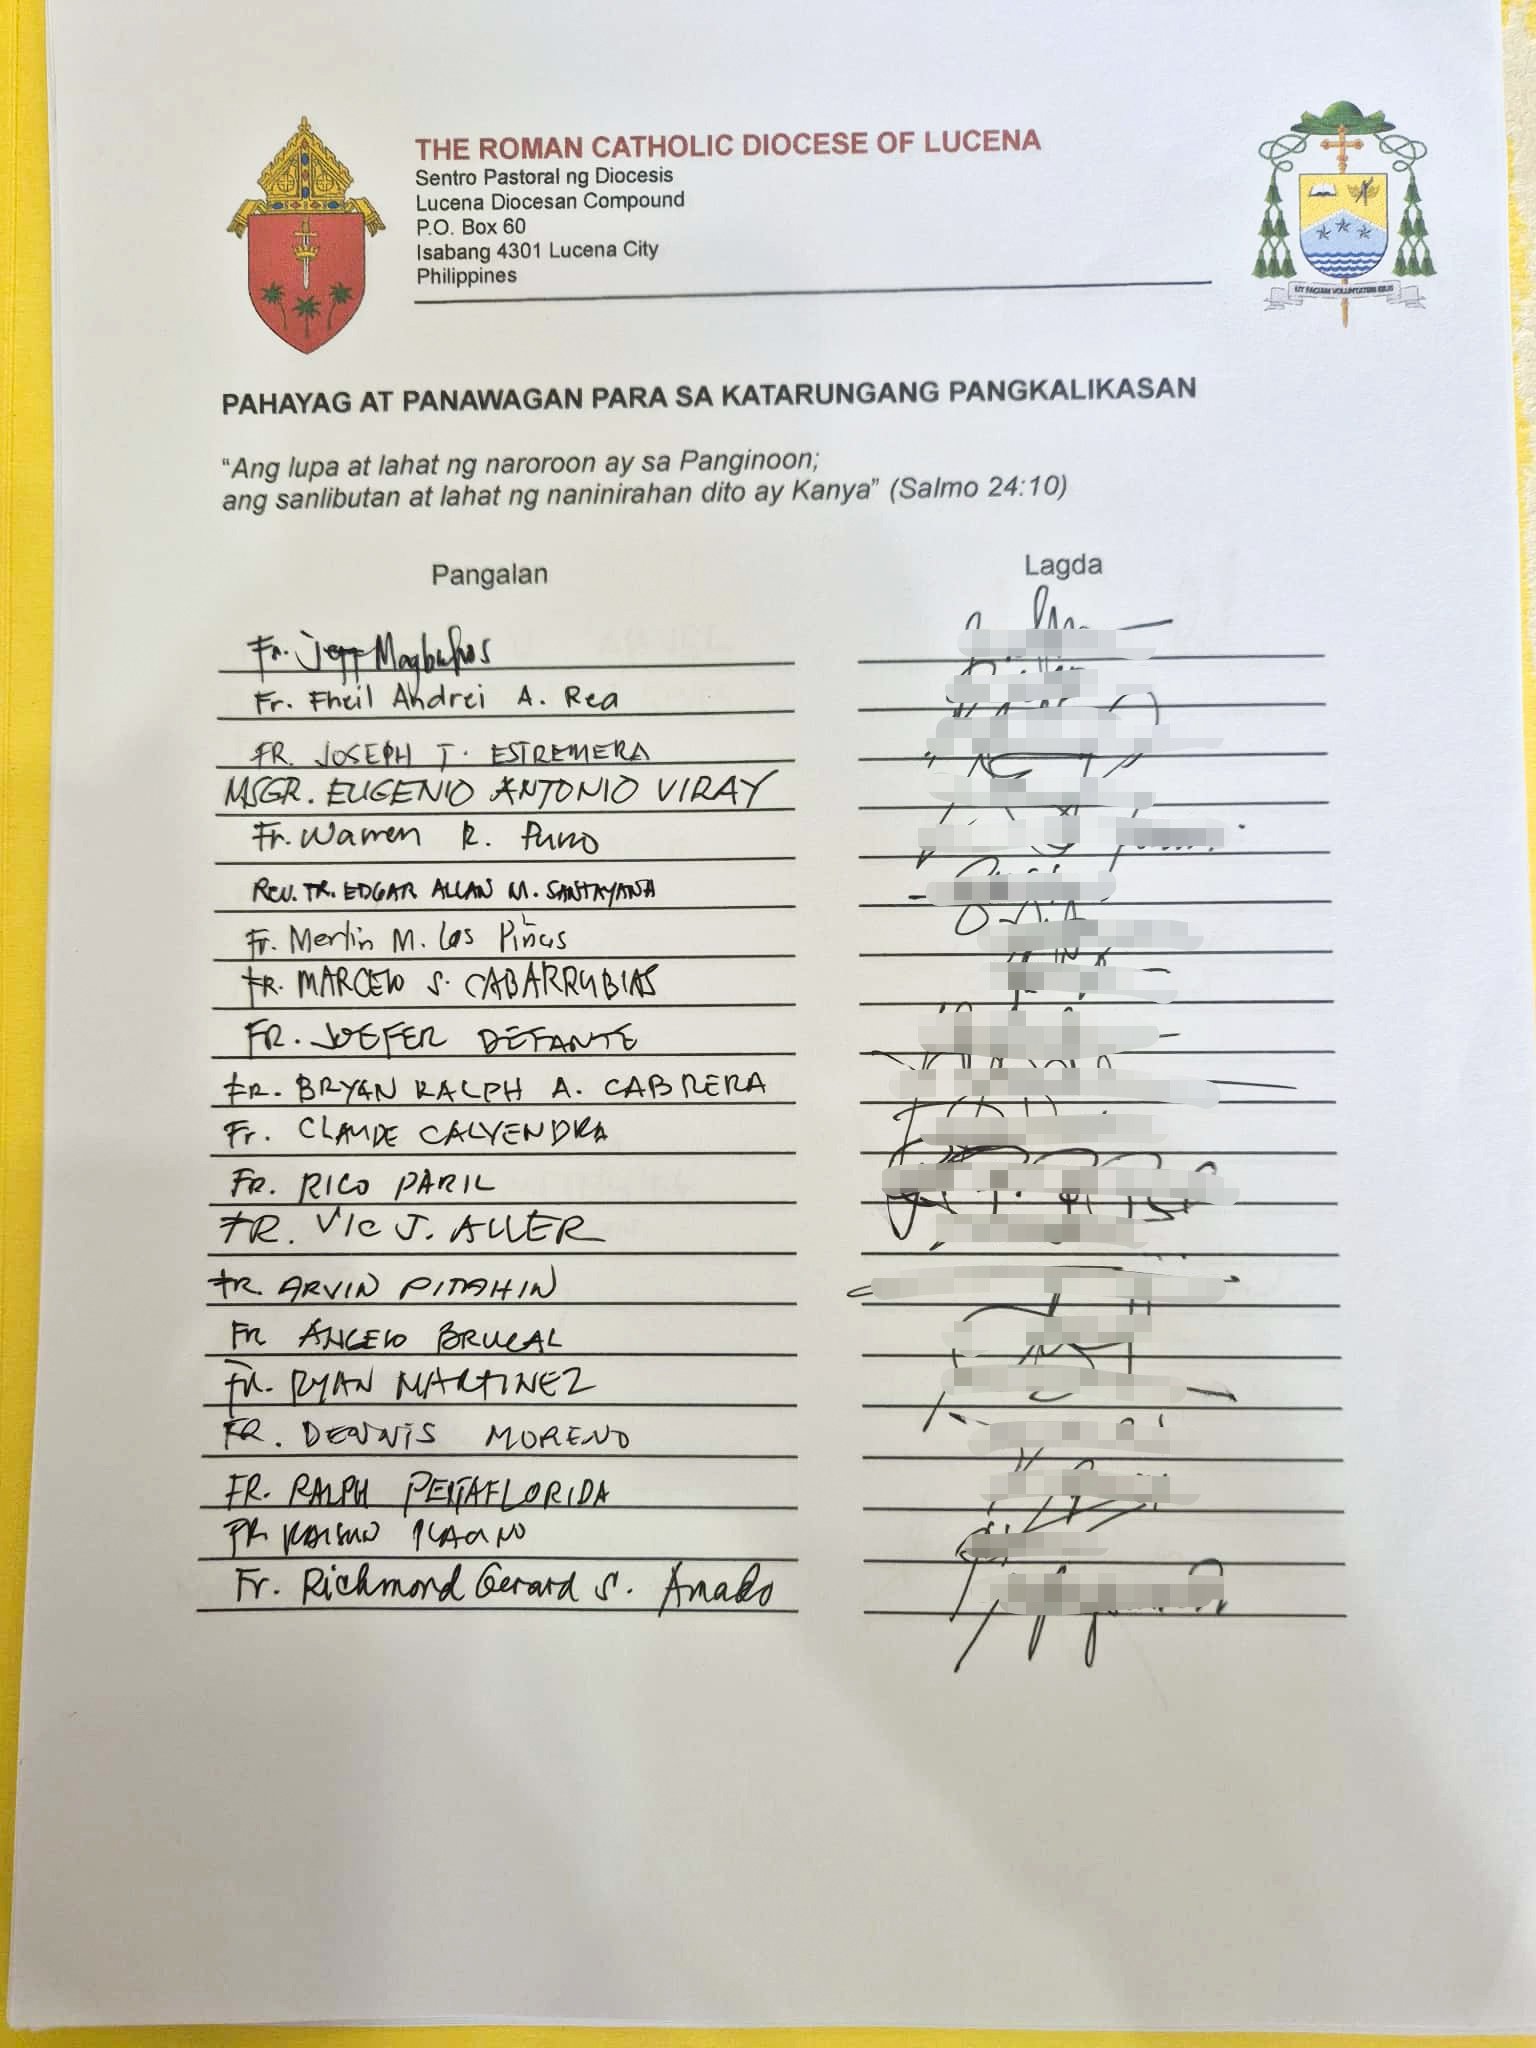 THE ROMAN CATHOLIC DIOCESE OF LUCENA
Sentro Pastoral ng Diocesis
Lucena Diocesan Compound
P.O. Box 60
Isabang 4301 Lucena City
Philippines
UT FACIAM VOLUNTATEM EIUS
PAHAYAG AT PANAWAGAN PARA SA KATARUNGANG PANGKALIKASAN
“Ang lupa at lahat ng naroroon ay sa Panginoon;
ang sanlibutan at lahat ng naninirahan dito ay Kanya” (Salmo 24:10)
Pangalan Lagda
Fr. Jeff Magbuhos
Fr. Fheil Andrei A. Rea
FR. JOSEPH T. ESTREMERA
MSGR. EUGENIO ANTONIO VIRAY
Fr. Warren R. Puno
Rev. FR. EDGAR ALLAN M. SANTAYANA
Fr. Merlin M. Las Piñas
FR. MARCELO S. CABARRUBIAS
FR. JOEFER DEFANTE
FR. BRYAN RALPH A. CABRERA
Fr. CLAUDE CALYENDRA
FR. RICO PARIL
FR. VIC J. ALLER
FR. ARVIN PITAHIN
FR ANGELO BRUCAL
FR. RYAN MARTINEZ
FR. DENNIS MORENO
FR. RALPH PEÑAFLORIDA
FR
Fr. Richmond Gerard S. Amado